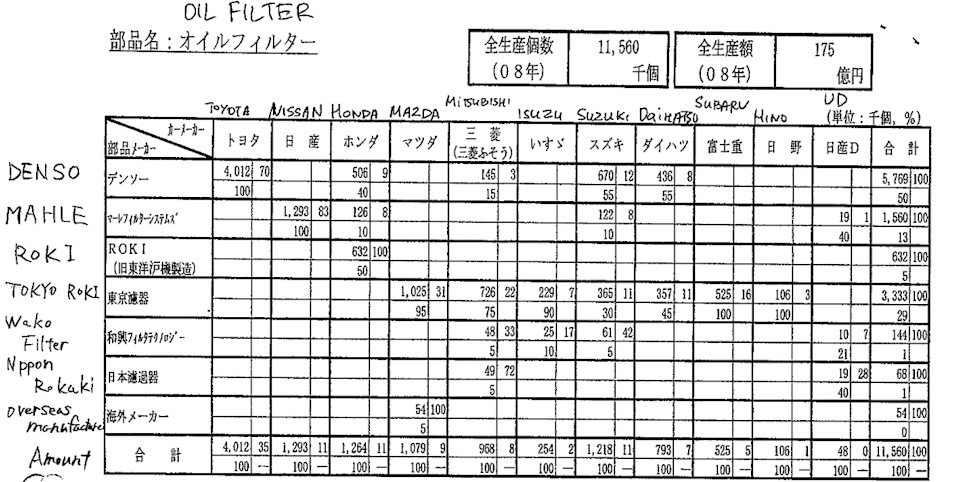 OIL FILTER
部品名：オイルフィルター
全生産個数 11,560 全生産額 175
（08年） 千個 （08年） 億円
TOYOTA NISSAN HONDA MAZDA MITSUBISHI ISUZU SUZUKI DAIHATSU SUBARU HINO UD
（単位：千個，％）
カーメーカー トヨタ 日産 ホンダ マツダ 三菱 いすゞ スズキ ダイハツ 富士重 日野 日産D 合計
部品メーカー （三菱ふそう）
DENSO デンソー 4,012 70 506 9 145 3 670 12 436 8 5,769 100
100 40 15 55 55 50
MAHLE マーレフィルターシステムズ 1,293 83 126 8 122 8 19 1 1,560 100
100 10 10 40 13
ROKI ROKI 632 100 632 100
（旧東洋沪機製造） 50 5
TOKYO ROKI 東京濾器 1,025 31 726 22 229 7 365 11 357 11 525 16 106 3 3,333 100
95 75 90 30 45 100 100 29
Wako
Filter 和興フィルタテクノロジー 48 33 25 17 61 42 10 7 144 100
5 10 5 21 1
Nppon
Rokaki 日本濾過器 49 72 19 28 68 100
5 40 1
Overseas
manufacture 海外メーカー 54 100 54 100
5 0
Amount 合計 4,012 35 1,293 11 1,264 11 1,079 9 968 8 254 2 1,218 11 793 7 525 5 106 1 48 0 11,560 100
100 － 100 － 100 － 100 － 100 － 100 － 100 － 100 － 100 － 100 － 100 － 100 －